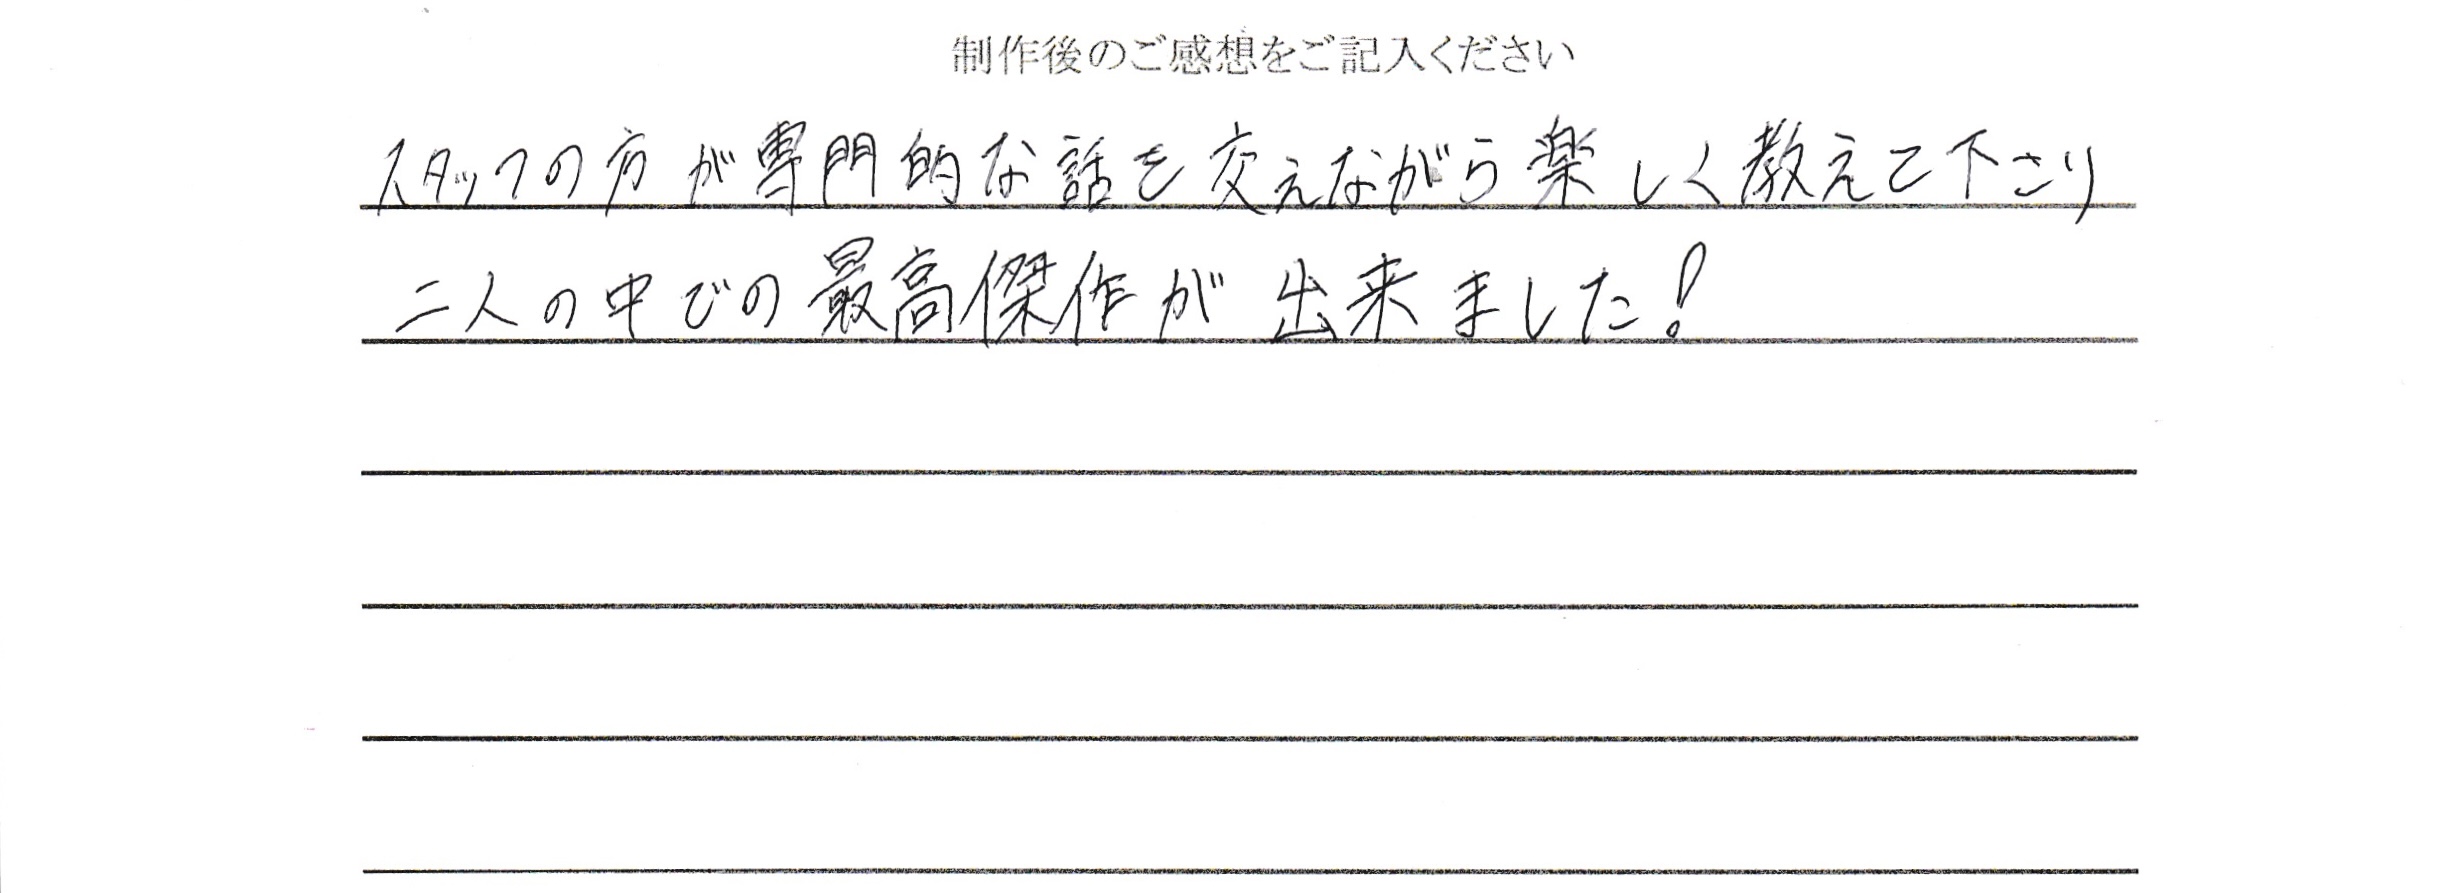 制作後のご感想をご記入ください
スタッフの方が専門的な話を交えながら楽しく教えて下さり
二人の中での最高傑作が出来ました!